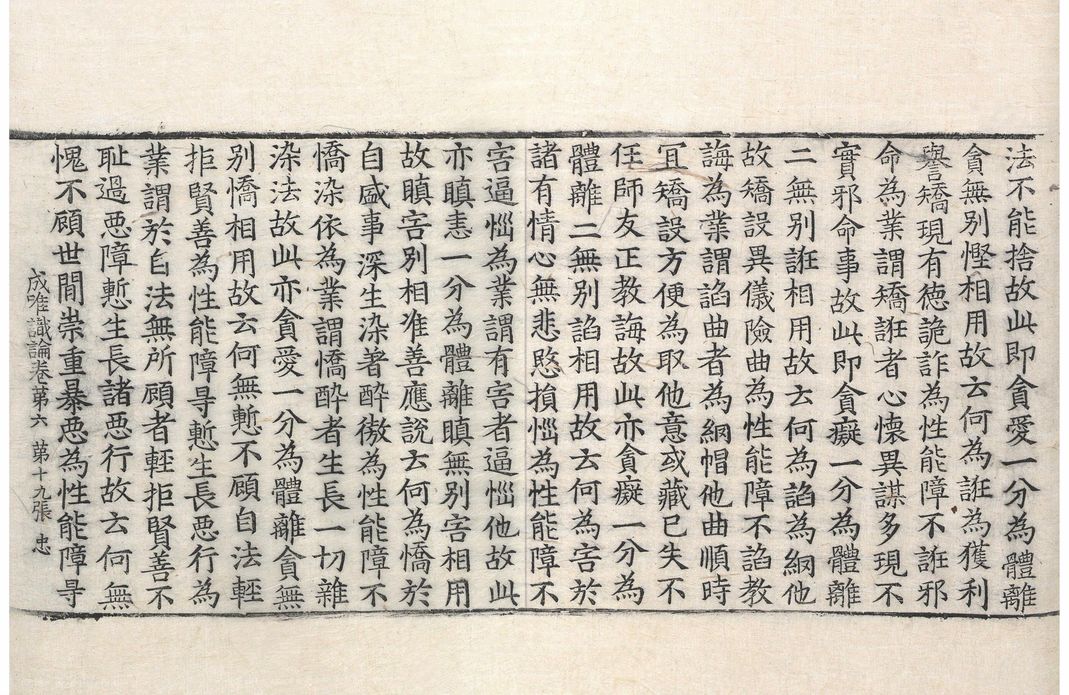 法不能捨故此即貪愛一分為體離
貪無別慳相用故云何為誑為獲利
譽矯現有德詭詐為性能障不誑邪
命為業謂矯誑者心懷異謀多現不
實邪命事故此即貪癡一分為體離
二無別誑相用故云何為諂為網他
故矯設異儀險曲為性能障不諂教
誨為業謂諂曲者為網帽他曲順時
冝矯設方便為取他意或藏已失不
任師友正教誨故此亦貪癡一分為
體離二無別諂相用故云何為害於
諸有情心無悲愍損惱為性能障不
害逼惱為業謂有害者逼惱他故此
亦瞋恚一分為體離瞋無別害相用
故瞋害別相准善應說云何為憍於
自盛事深生染著醉傲為性能障不
憍染依為業謂憍醉者生長一切雜
染法故此亦貪愛一分為體離貪無
別憍相用故云何無慙不顧自法輕
拒賢善為性能障㝵慙生長悪行為
業謂於自法無所顧者輕拒賢善不
耻過悪障慙生長諸悪行故云何無
愧不顧世間崇重暴悪為性能障㝵
成唯識論卷第六 第十九張 忠